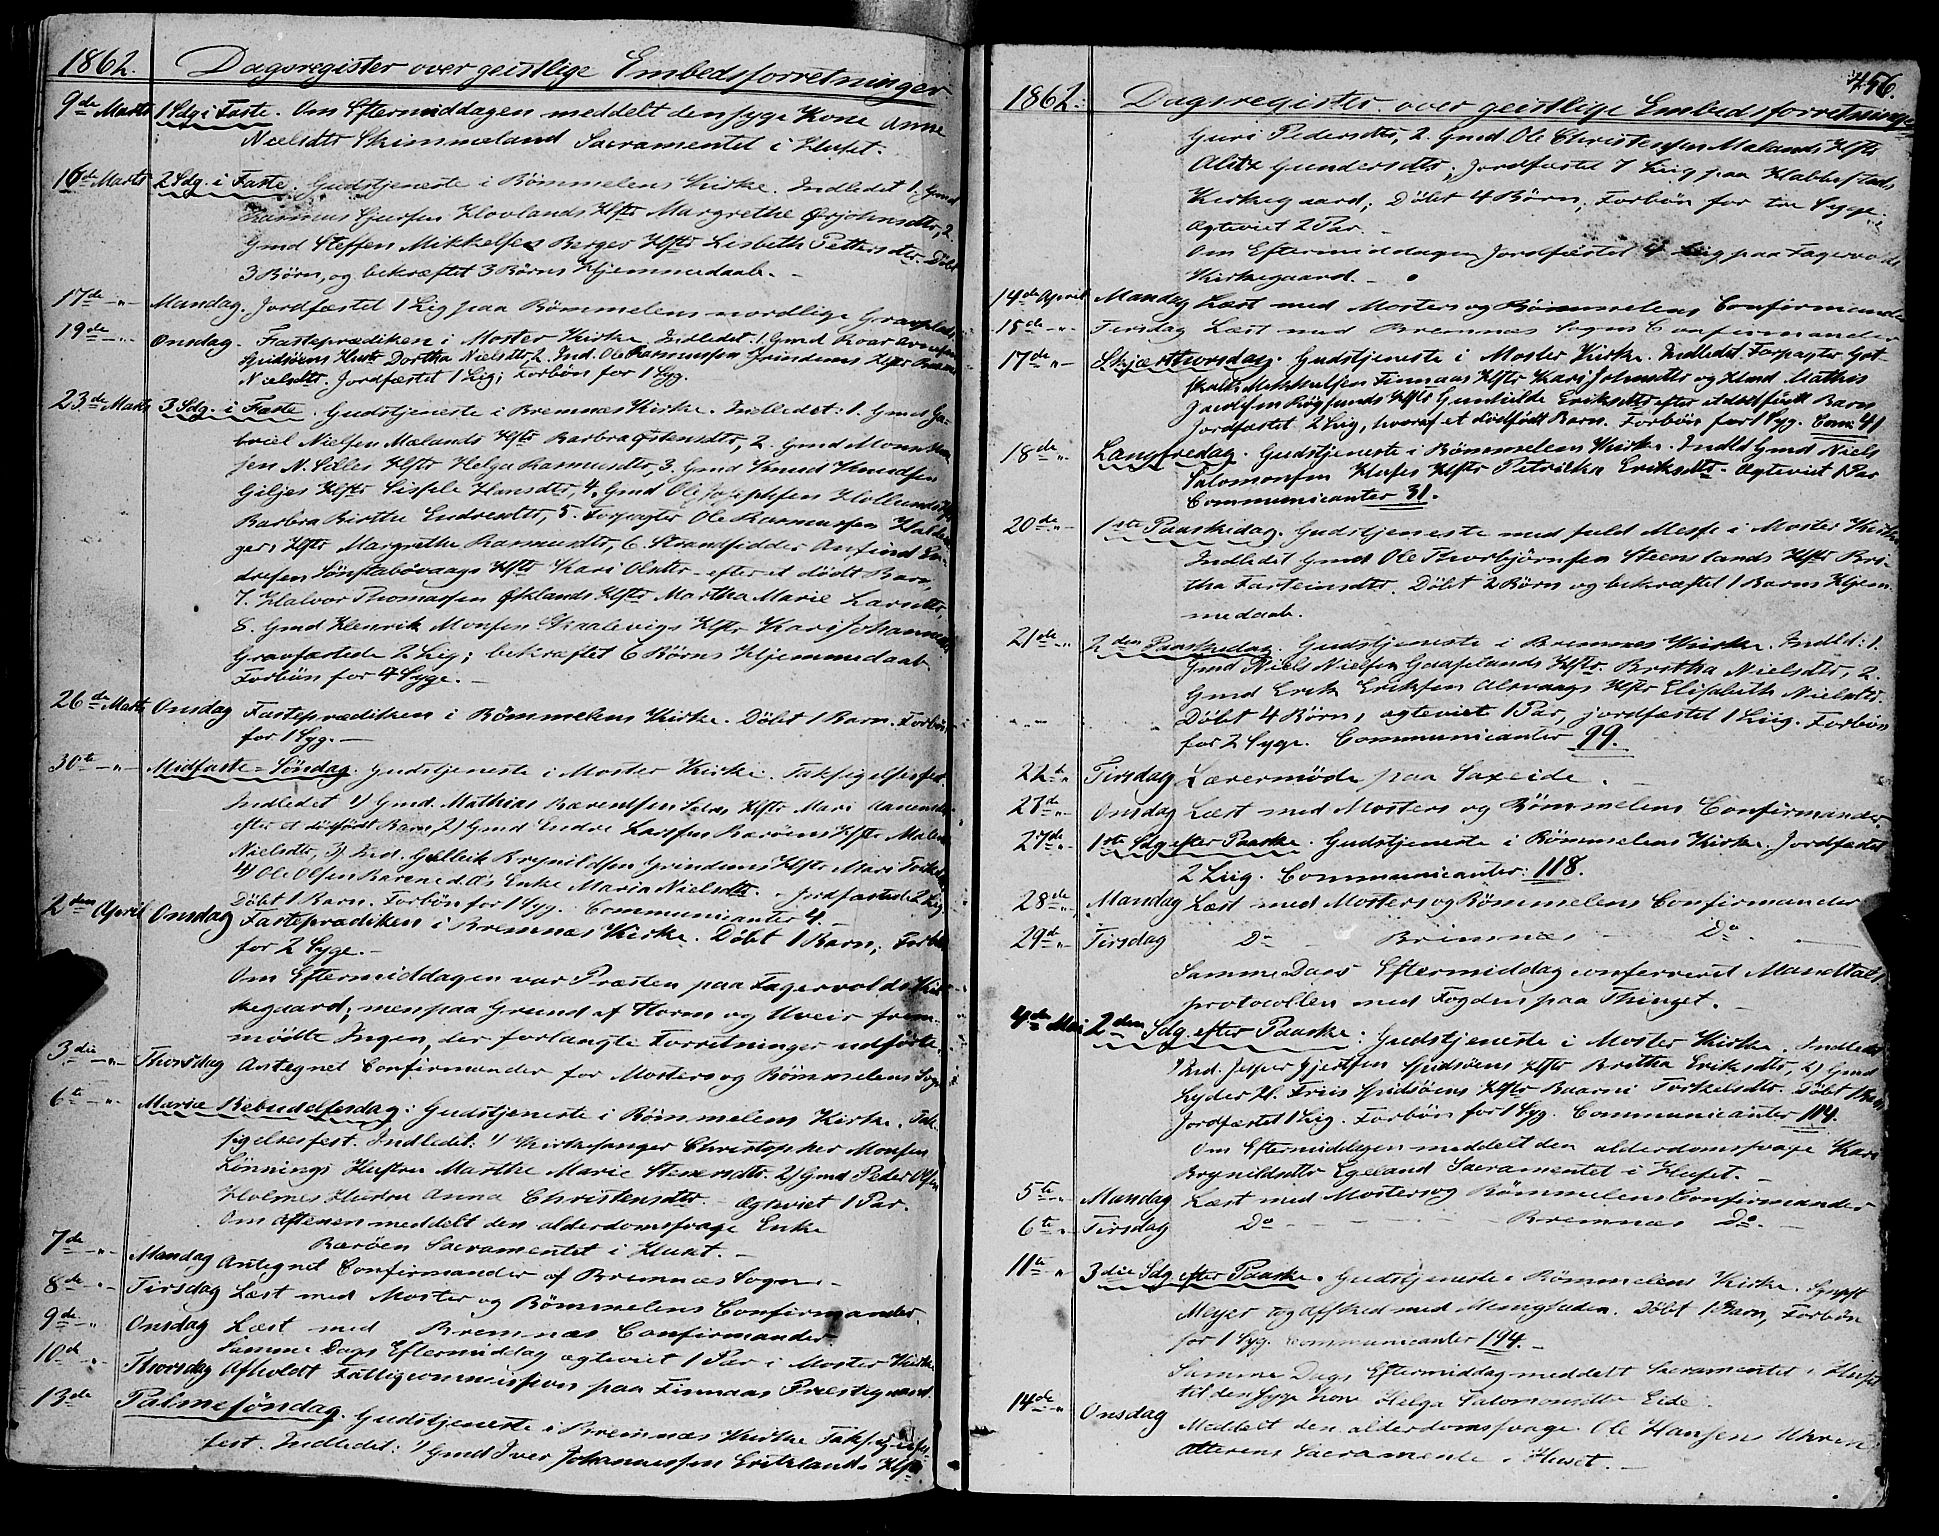 1862. Dagsregister over geistlige Embedsforretninger
9de Marts 1 Sdg i Faste. Om Eftermiddagen meddelt den syge Kone Anne
Nielsdtr Skimmeland Sacramentet i Huset.
16de Marts 2 Sdg. i Faste. Gudstjeneste i Bømmelens Kirke. Indledet 1. Gmd
Rasmus Hovlands Hstr Margrethe Ørjohnsdtr, 2
Gmd Steffen Mikkelsen Berger Hstr Lisbeth Pettersdtr. Døbt
3 Børn, og bekræftet 3 Børns Hjemmedaab. -
17de -"- Mandag. Jordfæstet 1 Lig paa Bømmelens nordlige Gravplads.
19de -"- Onsdag. Fasteprædiken i Moster Kirke. Indledet: 1. Gmd Roar
Gidsøens Hustr Dorthe Nielsdtr 2. Ind. Ole Rasmussen Grindems Hstr
Nielsdtr. Jordfæstet 1 Lig; Forbøn for 1 Syg.
23de Marts 3 Sdg. i Faste. Gudstjeneste i Bremnæs Kirke. Indledet: 1. Gmd Ga-
briel Nielsen Mælands Hstr Barbra Østensdtr, 2. Gmd Mons
sen N. Selles Hstr Helga Rasmusdtr, 3. Gmd Knud Knudsen
Giljes Hstr Sissele Hansdtr, 4. Gmd Ole Josephsen Hollunds Hstr
Barbra Birthe Endresdtr, 5. Forpagter Ole Rasmussen
gers Hstr Margrethe Rasmusdtr, 6. Strandsidder Anfind En-
dresen Sønstabøvaags Hstr Kari Olsdtr - efter et dødt Barn,
7. Halvor Thomassen Øklands Hstr Martha Marie Larsdtr,
8. Gmd Henrik Monsen Skaalevigs Hstr Kari Johannesdtr
Gravfæstede 2 Lig; bekræftet 6 Børns Hjemmedaab
Forbøn for 4 Syge. -
26de Marts Onsdag Fasteprædiken i Bømmelens Kirke. Døbt 1 Barn. Forbøn
for 1 Syg. -
30te -"- Midfaste-Søndag. Gudstjeneste i Moster Kirke. Taksigelsesfest.
Indledet 1) Gmd. Mathias Bærentsen Hstr Mari
efter et dødfødt Barn 2) Gmd Endre Larssen Barøens Hstr Malene
Nielsdtr, 3) Ind. Gullik Brynildsen Grindems Hstr Mari
4) Ole Olsen Enke Maria Nielsdtr. - Jordfæstede 2 Lig
Døbt 1 Barn. Forbøn for 1 Syg. Communicanter 4.
2den April Onsdag Fasteprædiken i Bremnæs Kirke. Døbt 1 Barn; Forbøn
for 2 Syge. -
Om Eftermiddagen var Præsten paa Fagervolds Kir-
kegaard, men paa Grund af Storm og Uveir frem-
mødte Ingen, der forlangte Forretninger udførte.
3die -"- Thorsdag Antegnet Confirmander for Mosters og Bømmelens Sogne
6te -"- Mariæ Bebudelsesdag: Gudstjeneste i Bømmelens Kirke. Tak-
sigelsesfest. Indledet: 1) Kirkesanger Christopher Monsen
Lønnings Hustru Marthe Marie Stenersdtr. 2) Gmd Peder Olsen
Holmes Hustru Anna Christensdtr. - Ægteviet 1 Par.
Om Aftenen meddelt den alderdomssvage Enke
Barøen Sacramentet i Huset. -
7de -"- Mandag Antegnet Confirmander af Bremnæs Sogn. -
8de -"- Tirsdag Læst med Moster og Bømmelens Confirmander.
9de -"- Onsdag Læst med Bremnæs Confirmander
Samme Dags Eftermiddag ægteviet 1 Par i Moster Kirke
10de -"- Thorsdag Afholdt Fattigcommission paa Finnaas Præstegaard.
13de Palmesøndag. Gudstjeneste i Bremnæs Kirke Taksigelses-
fest. Indledet: 1) Gmd Iver Johannessen Eritslands Hstr
456.
1862. Dagsregister over geistlige Embedsforretninger
Guri Pedersdtr, 2. Gmd Ole Christensen Mælands Hstr
Alitz Gundersdtr; Jordfæstet 7 Liig paa
Kirkegaard; Døbt 4 Børn; Forbøn for tre Syge;
Ægteviet 2 Par. -
Om Eftermiddagen Jordfæstet 4 Liig paa Fagervolds
Kirkegaard. -
14de April Mandag Læst med Mosters og Bømmelens Confirmander
15de -"- Tirsdag Læst med Bremnæs Sogns Confirmander
17de "- Skjærthorsdag. Gudstjeneste i Moster Kirke. Indledet Forpagter Got-
skalk Mikkelsen Finnaas Hstr Kari Johnsdtr og Hmd Mathis
Jacobsen Røgsunds Hstr Gunhilde Eriksdtr efter et dødfødt Barn
Jordfæstet 2 Liig, hvoraf et dødfødt Barn. Forbøn for 1 Syg. Com: 41
18de "- Langfredag. Gudstjeneste i Bømmelens Kirke. Indld Gmd Niels
Salomonsen Huses Hstr Petricka Eriksdtr. Ægteviet 1 Par
Communicanter 31.
20de "- 1ste Paaskedag. Gudstjeneste med fuld Messe i Moster Kirke
Indledet Gmd Ole Thorbjørnsen Steenslands Hstr Bri-
tha Fasteinsdtr. Døbt 2 Børn og bekræftet 1 Barns Hjem-
medaab.
21de "- 2den Paaskedag. Gudstjeneste i Bremnæs Kirke. Indld: 1.
Gmd Niels Nielsen Gaaselands Hstr. Britha Nielsdtr, 2.
Gmd Erik Eriksen Alsvaags Hstr Elisabeth Nielsdtr.
Døbt 4 Børn, ægteviet 1 Par, jordfæstet 1 Liig. Forbøn
for 2 Syge. Communicanter 99.
22de "- Tirsdag Lærermøde paa Saxeide. -
23de "- Onsdag Læst med Mosters og Bømmelens Confirmander.
27de "- 1ste Sdg efter Paaske. Gudstjeneste i Bømmelens Kirke. Jordfæstet
2 Liig. Communicanter: 118.
28de "- Mandag Læst med Mosters og Bømmelens Confirmander
29de "- Tirsdag Do - Bremnæs - Do. -
Samme Dags Eftermiddag confereret Mandtals-
protocollen med Fogden paa Thinget. -
4de Mai 2den Sdg efter Paaske: Gudstjeneste i Moster Kirke. Indledet
1) Ind. Jesper Gjertsen Gidsøens Hstr Britha Eriksdtr, 2) Gmd
Lyder H. Friis Gidsøens Hstr Baarni Torkelsdtr. Døbt 1 Barn
Jordfæstet 1 Liig. Forbøn for 1 Syg. Communicanter 114.
Om Eftermiddagen meddelt den alderdomssvage Kari
Brynildsdtr Egeland Sacramentet i Huset. -
5te "- Mandag Læst med Mosters og Bømmelens Confirmander
6te "- Tirsdag Do - - - Bremnæs Do. -
11te "- 3die Sdg efter Paaske. Gudstjeneste i Bømmelens Kirke.
Meyer og Afsked med Menigheden. Døbt 1 Barn, Forbøn
for 1 Syg. Communicanter 194. -
Samme Dags Eftermiddag meddelt Sacramentet i Huset
til den syge Kone Helga Salomonsdtr Eide.
14de "- Onsdag Meddelt den alderdomssvage Ole Hansens
Alterens Sacramente i Huset. -